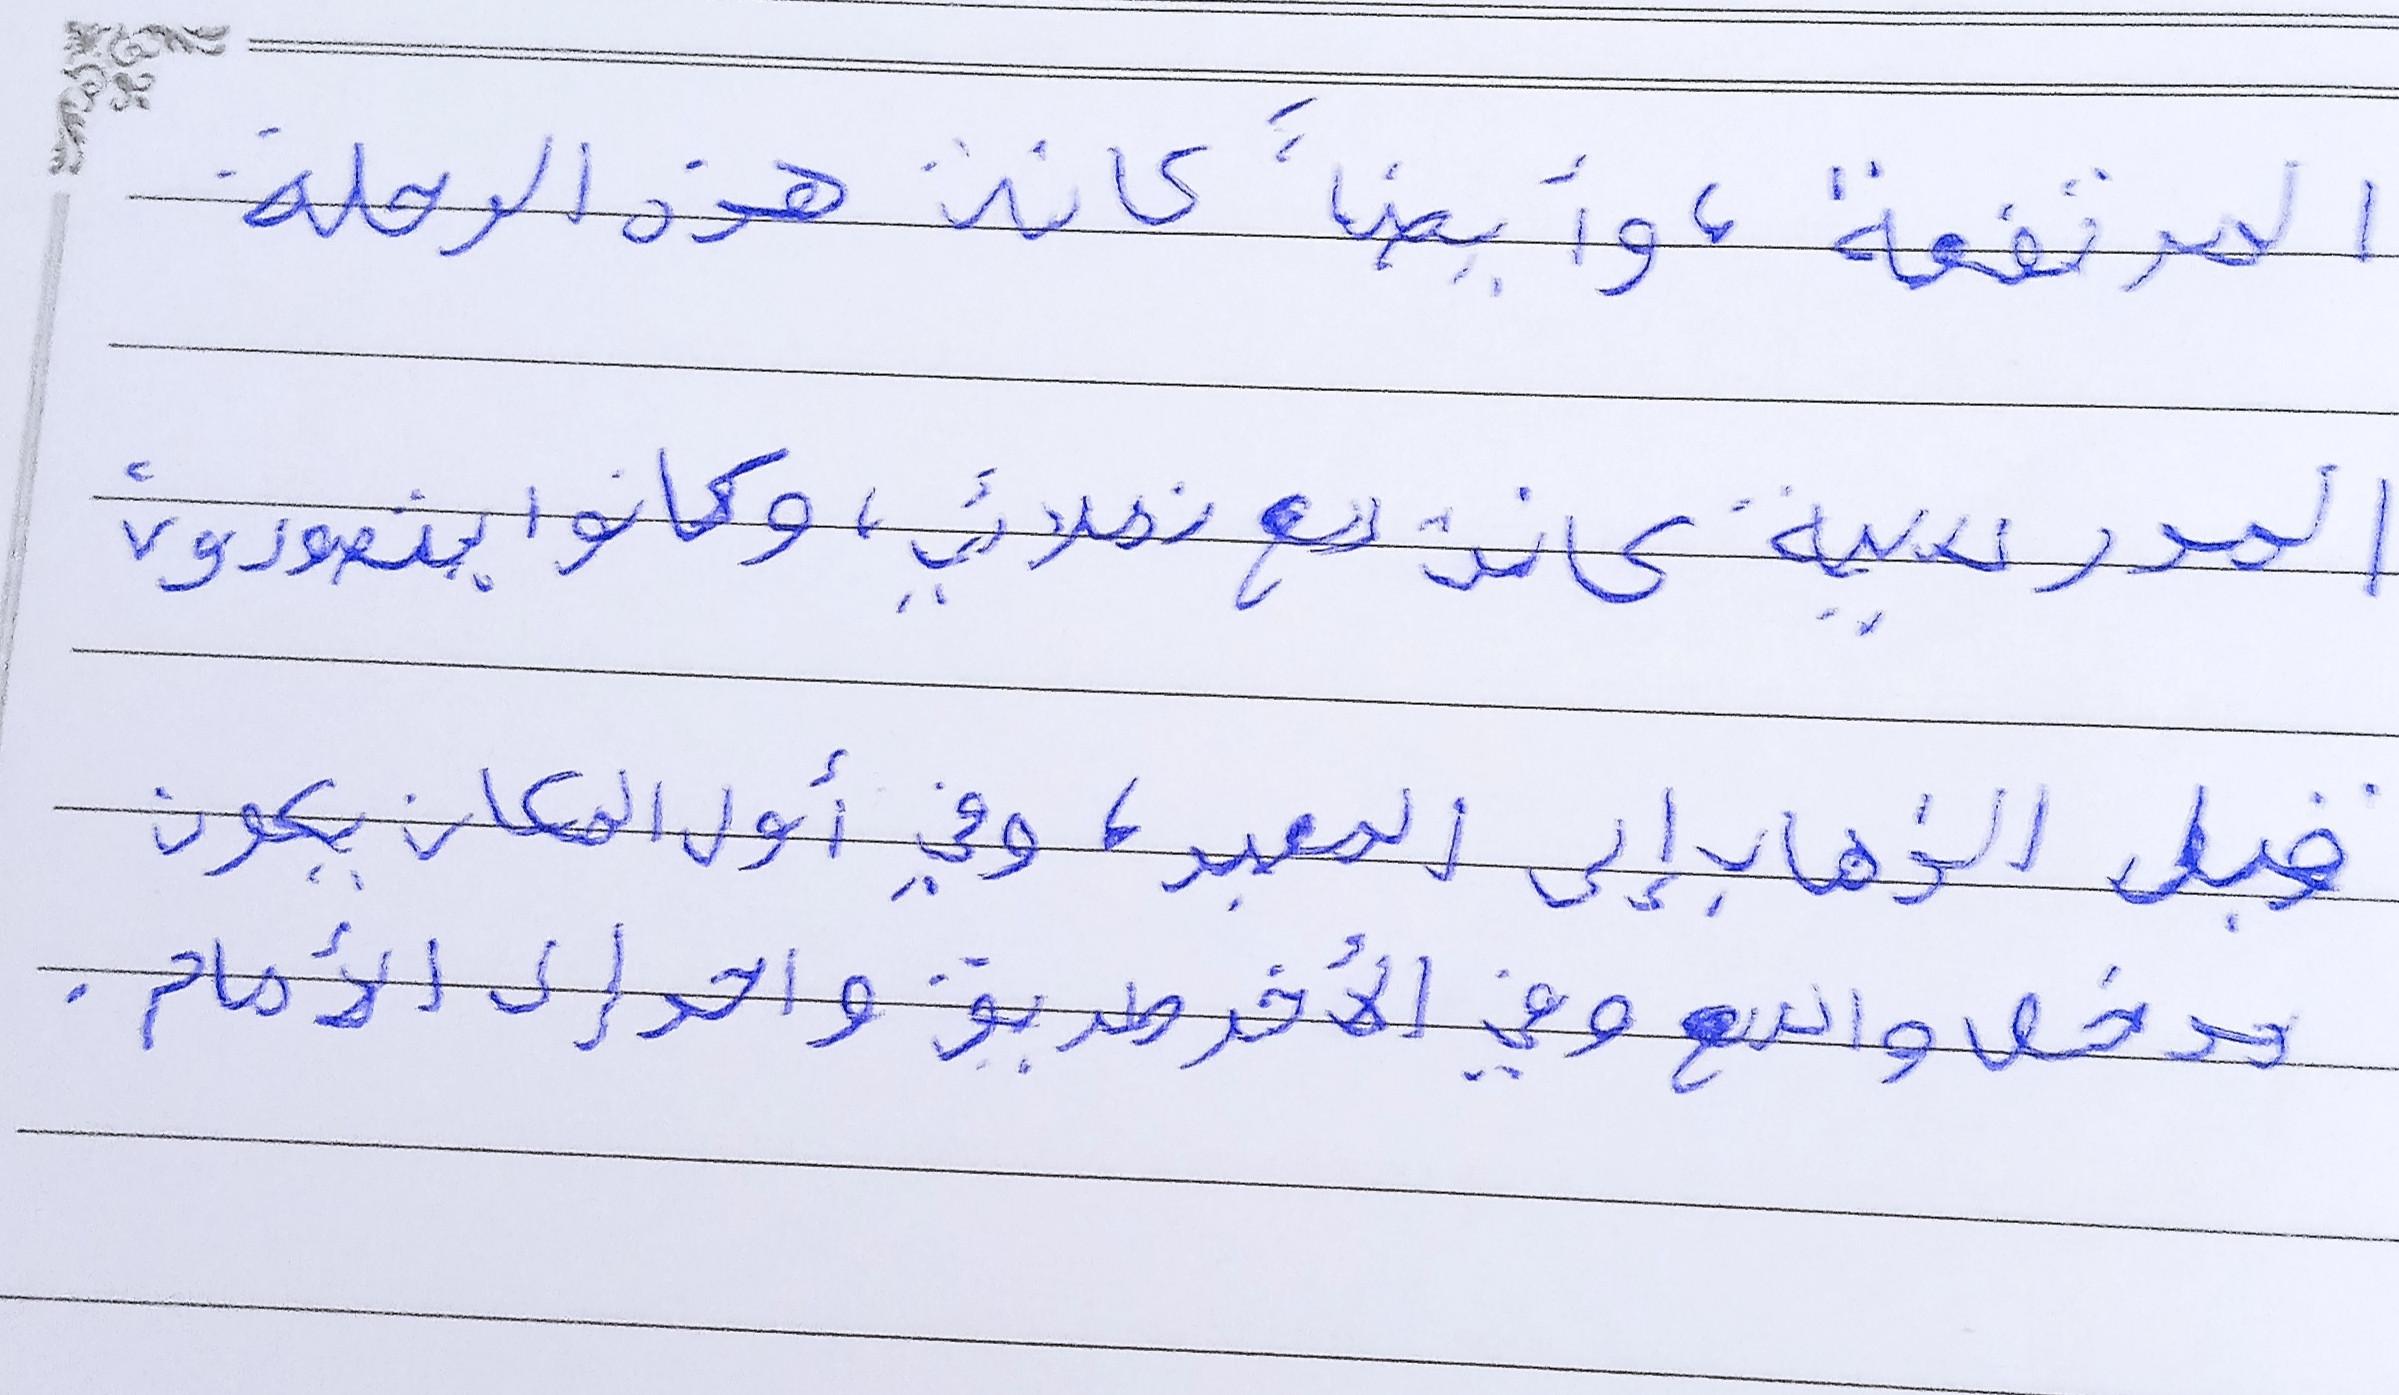 المرتفعة ، وأيضاً كانت هذه الرحلة
المدرسية كانت مع زملائي ، وكانوا يتصورون
قبل الذهاب إلى المعبد ، وفي أول المكان يكون
مدخل واسع وفي الأخر طريق واحد إلى الأمام .